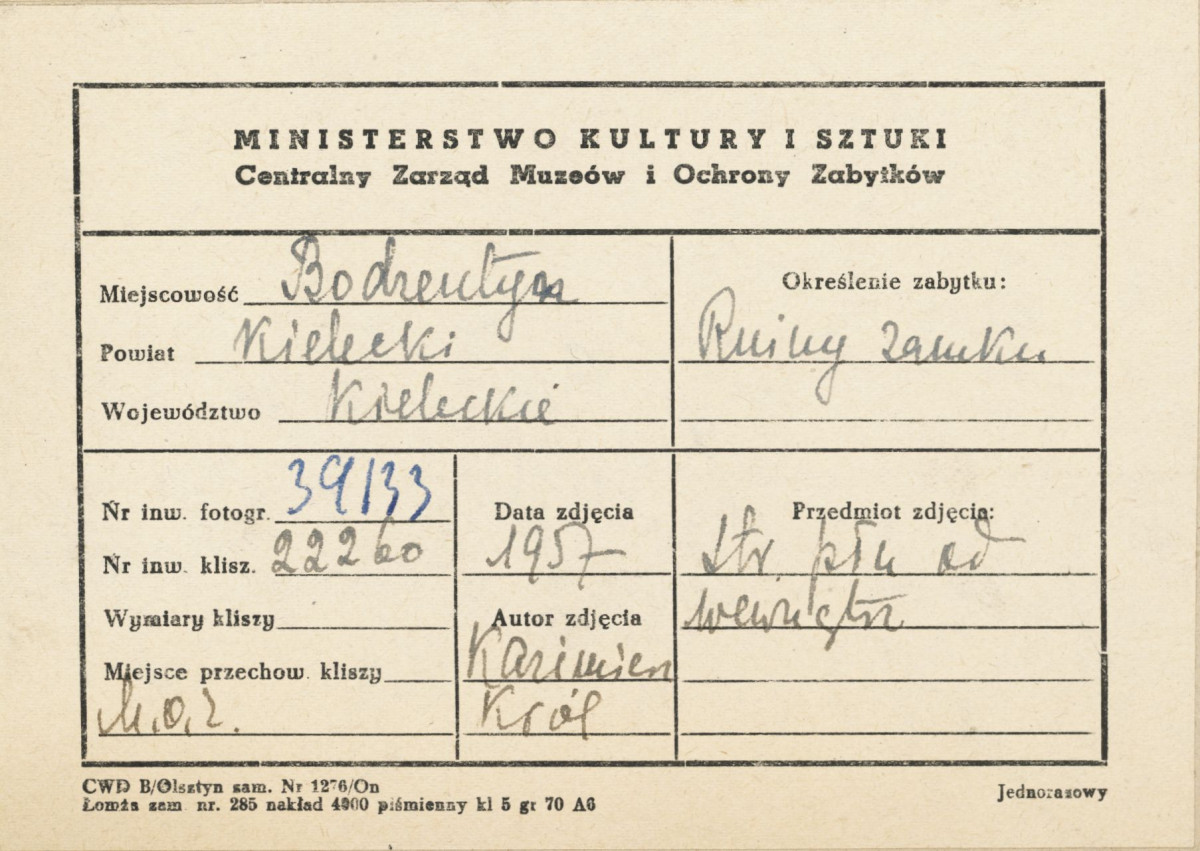 MINISTERSTWO KULTURY I SZTUKI
Centralny Zarząd Muzeów i Ochrony Zabytków
Miejscowość Bodzentyn
Powiat Kielecki
Województwo Kieleckie
Określenie zabytku:
Ruiny zamku
Nr inw. fotogr. 39/33
Nr inw. klisz. 22260
Wymiary kliszy
Miejsce przechow. kliszy
M.O.Z.
Data zdjęcia
1957
Autor zdjęcia
Kazimierz
Król
Przedmiot zdjęcia:
Str. płn od
wewnątrz
CWD B/Olsztyn sam. Nr 1276/On
Łomża zam nr. 285 nakład 4000 piśmienny kl 5 gr 70 A6
Jednorazowy